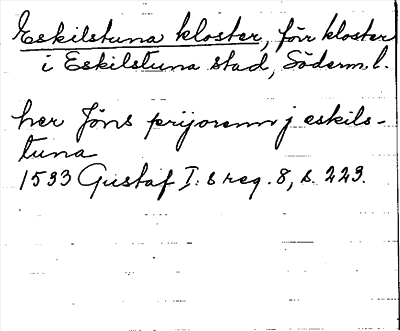 Eskilstuna kloster, förr kloster
i Eskilstuna stad, Söderm. l.
her Jöns prijorenn j eskils-
tuna
1533 Gustaf I:s reg. 8, s. 223.